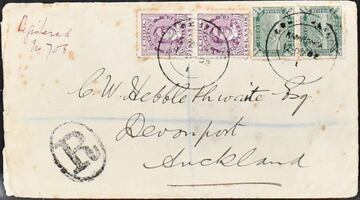 Registered
No 708
C. W. Hebblethwaite Esq
Devonport
Auckland
R